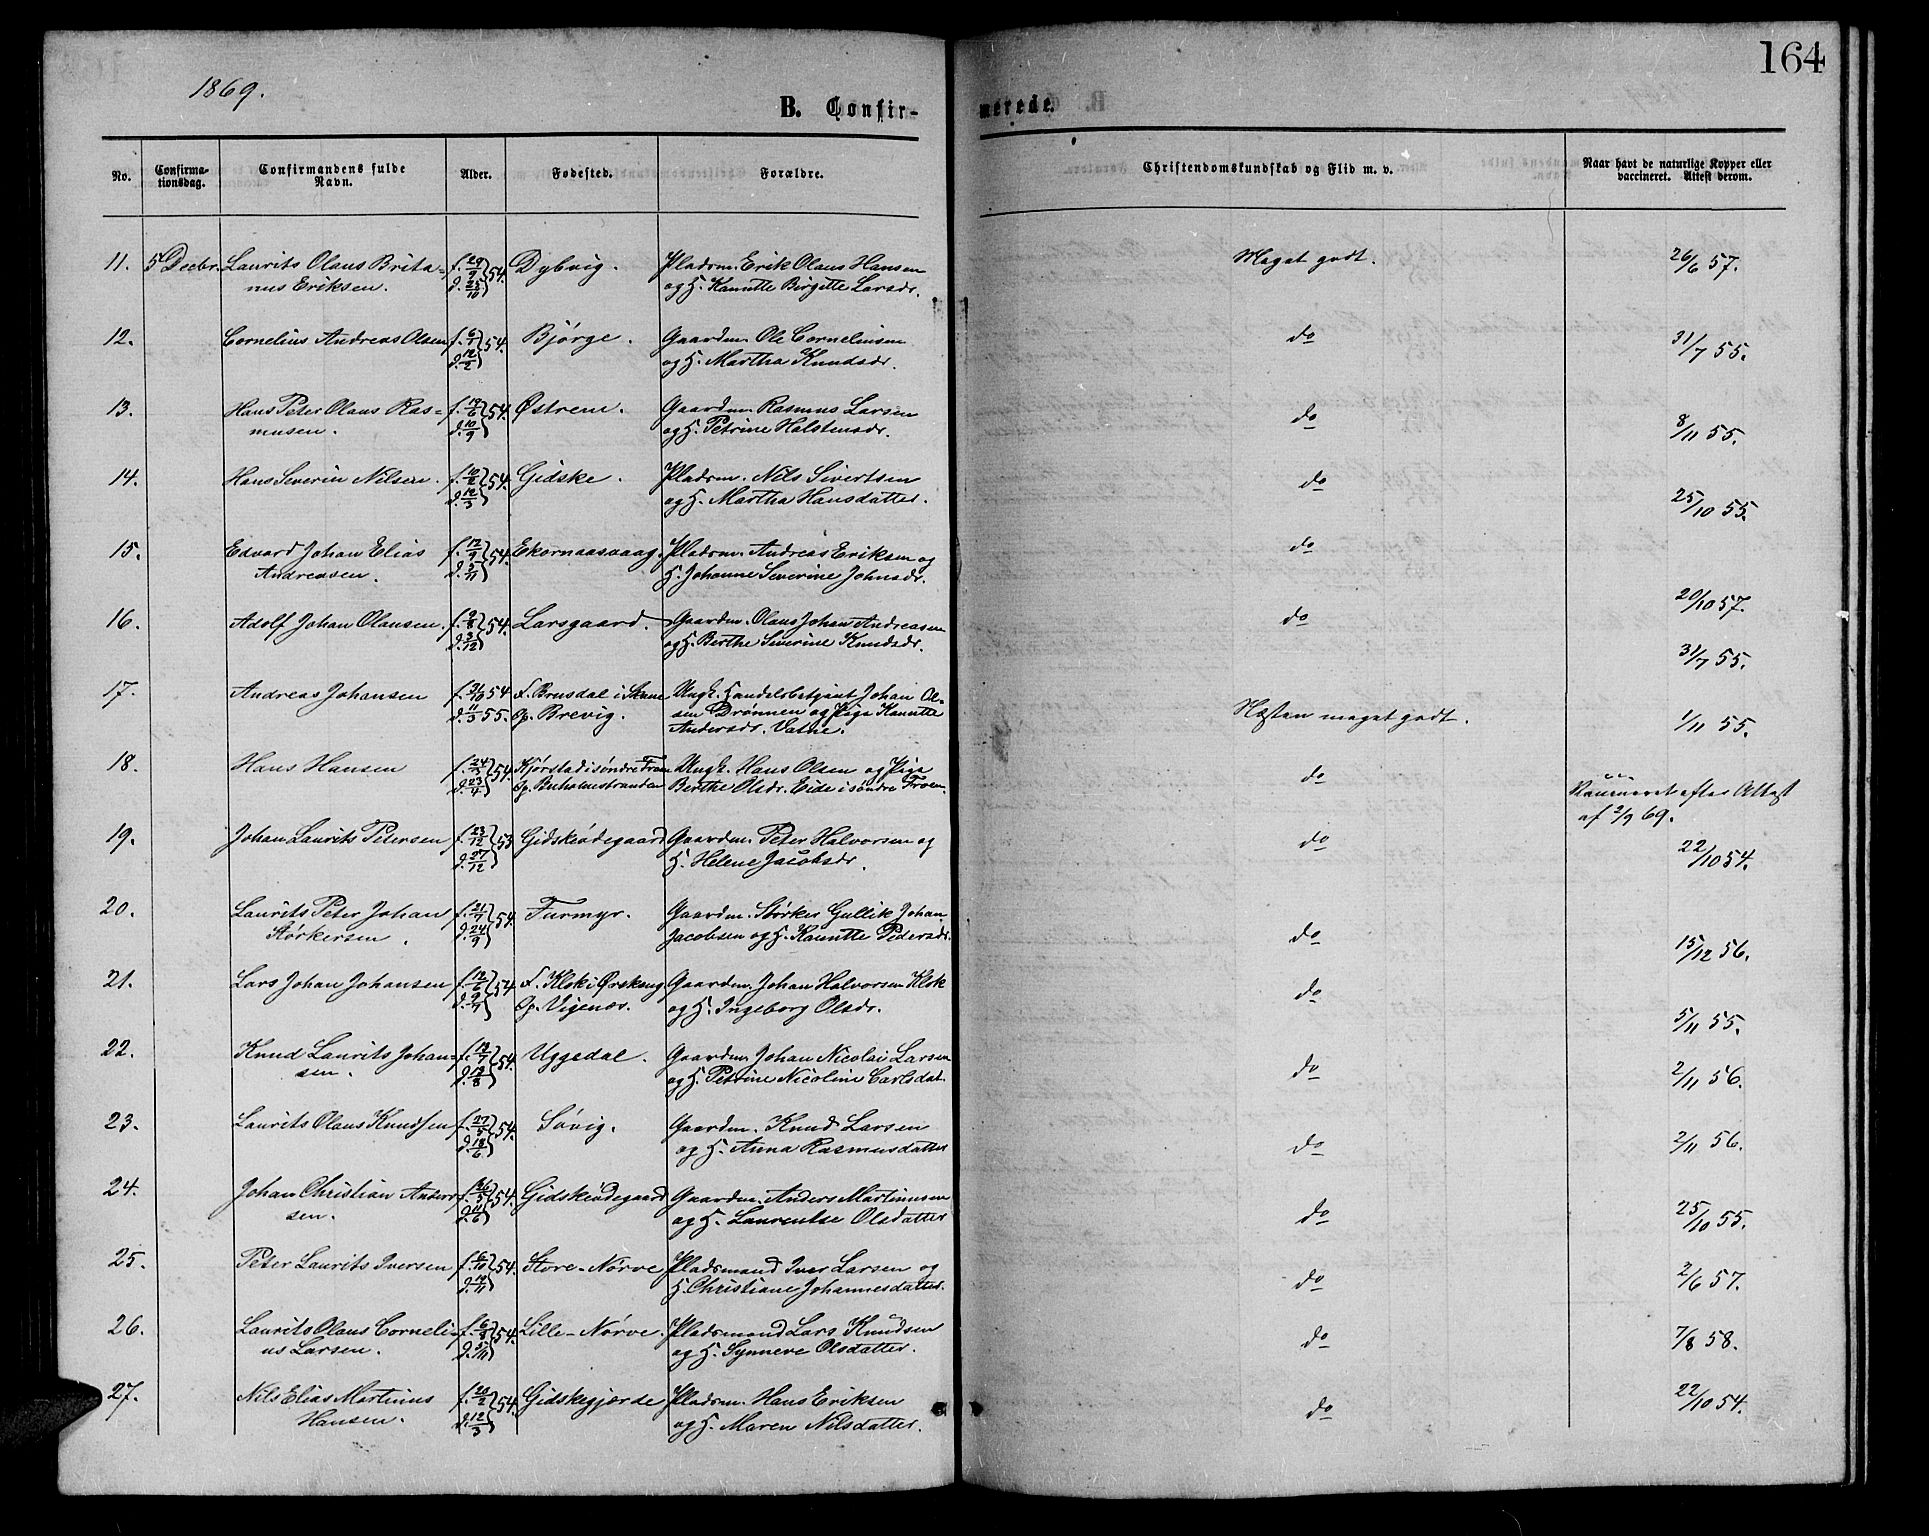 164
1869.
B. Confir-
merede.
No.
Confirma-
tionsdag.
Confirmandens fulde
Navn.
Alder.
Fødested.
Forældre.
Christendomskundskab og Flid m. v.
Naar havt de naturlige Kopper eller
vaccineret. Attest derom.
11. 5 Decbr. Laurits Olaus Brita- f. 29/9 54. Dybvig. Pladsm. Erik Olaus Hansen Meget godt. 26/6 57.
nus Eriksen. d. 25/10 og H. Kanutte Birgitte Larsdr.
12. Cornelius Andreas Olsen f. 6/1 54. Bjørge. Gaardm. Ole Corneliusen do 31/7 55.
d. 12/2 og H. Martha Knudsdr.
13. Hans Peter Olaus Ras- f. 19/6 54. Østrem. Gaardm. Rasmus Larsen do 8/11 55.
musen. d. 10/9 og H. Petrine Halstensdr.
14. Hans Severin Nilsen. f. 10/2 54. Gidske. Pladsm. Nils Sivertsen do 25/10 55.
d. 12/3 og H. Martha Hansdatter.
15. Edvard Johan Elias f. 12/9 54. Ekornaasvaag. Pladsm. Andreas Eriksen og do 20/10 57.
Andreasen. d. 5/11 H. Johanne Severine Johnsdr.
16. Adolf Johan Olausen. f. 9/8 54. Larsgaard. Gaardm. Olaus Johan Andreasen do 31/7 55.
d. 3/12 og H. Berthe Severine Knudsdr.
17. Andreas Johansen f. 31/10 54 F. Brusdal i Skoue Ungk. Handelsbetjent Johan Ol- Næsten meget godt. 1/11 55.
d. 11/3 55. Op. Brevig. sen Drønnen og Pige Kanutte
Andersdr. Vatne.
18. Hans Hansen f. 24/3 54. Kjørstad i søndre Fron Ungk. Hans Olsen og Pige do Vaccineret efter Attest
d. 23/4 Op. Buholmstranden Berthe Olsdr. Eide i søndre Fron. af 2/9 69.
19. Johan Laurits Petersen f. 23/12 53 Gidskeødegaard Gaardm. Peter Halvorsen og do 22/10 54.
d. 27/12 H. Helene Jacobsdr.
20. Laurits Peter Johan f. 21/7 54. Furmyr. Gaardm. Størker Gullik Johan do 15/12 56.
Størkersen. d. 24/9 Jacobsen og H. Kanutte Pedersdr.
21. Lars Johan Johansen f. 12/6 54 F. Klok i Ørskoug Gaardm. Johan Halvorsen Klok do 5/11 55.
d. 9/7 Op. Vigenes. og H. Ingeborg Olsdr.
22. Knud Laurits Johan- f. 19/7 54. Uggedal. Gaardm. Johan Nicolai Larsen do 2/11 56.
sen. d. 19/8 og H. Petrine Nicoline Carlsdat.
23. Laurits Olaus Knudsen f. 27/5 54. Søvig. Gaardm. Knud Larsen do 2/11 56.
d. 18/6 og H. Anna Rasmusdatter
24. Johan Christian Anders- f. 26/5 54. Gidskeødegaard Gaardm. Anders Martinusen do 25/10 55.
sen. d. 11/6 og H. Laurentse Olsdatter
25. Peter Laurits Iversen f. 6/10 54. Store-Nørve Pladsmand Iver Larsen og do 2/6 57.
d. 19/11 H. Christiane Johannesdatter.
26. Laurits Olaus Corneli- f. 6/9 54. Lille-Nørve. Pladsmand Lars Knudsen do 7/8 58.
us Larsen. d. 5/11 og H. Synneve Olsdatter.
27. Nils Elias Martinus f. 20/2 54. Gidskegjerde Pladsm. Hans Eriksen do 22/10 54.
Hansen. d. 12/3 og H. Maren Nilsdatter.